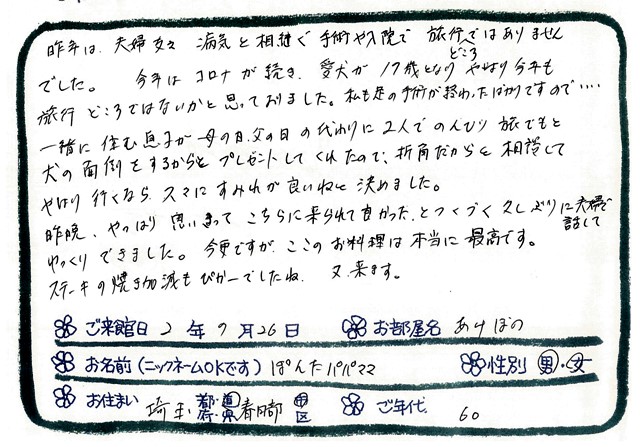 昨年は、夫婦共々 病気と相次ぐ手術や入院で 旅行どころではありません
でした。 今年は コロナが続き、愛犬が 17歳となり やはり今年も
旅行 どころではないかと思っておりました。私も足の手術が終わったばかりですので‥‥
一緒に住む息子が 母の日、父の日の代わりに 2人でのんびり旅でもと
犬の面倒をするからと プレゼントしてくれたので、折角だからと相談して
やはり 行くなら スマにすみれが良いねと決めました。
昨晩、やっぱり 思い切って こちらに来られて良かった、とつくづく 久しぶりに夫婦で
ゆっくり できました。 今更ですが、ここのお料理は本当に最高です。 話して
ステーキの焼き加減もぴかーでしたね 又、来ます。
ご来館日 2年9月26日 お部屋名 あけぼの
お名前(ニックネームOKです) ぽんたパパママ 性別 男・女
お住まい 埼玉 都・道・府・県 春日部 市 区 ご年代 60